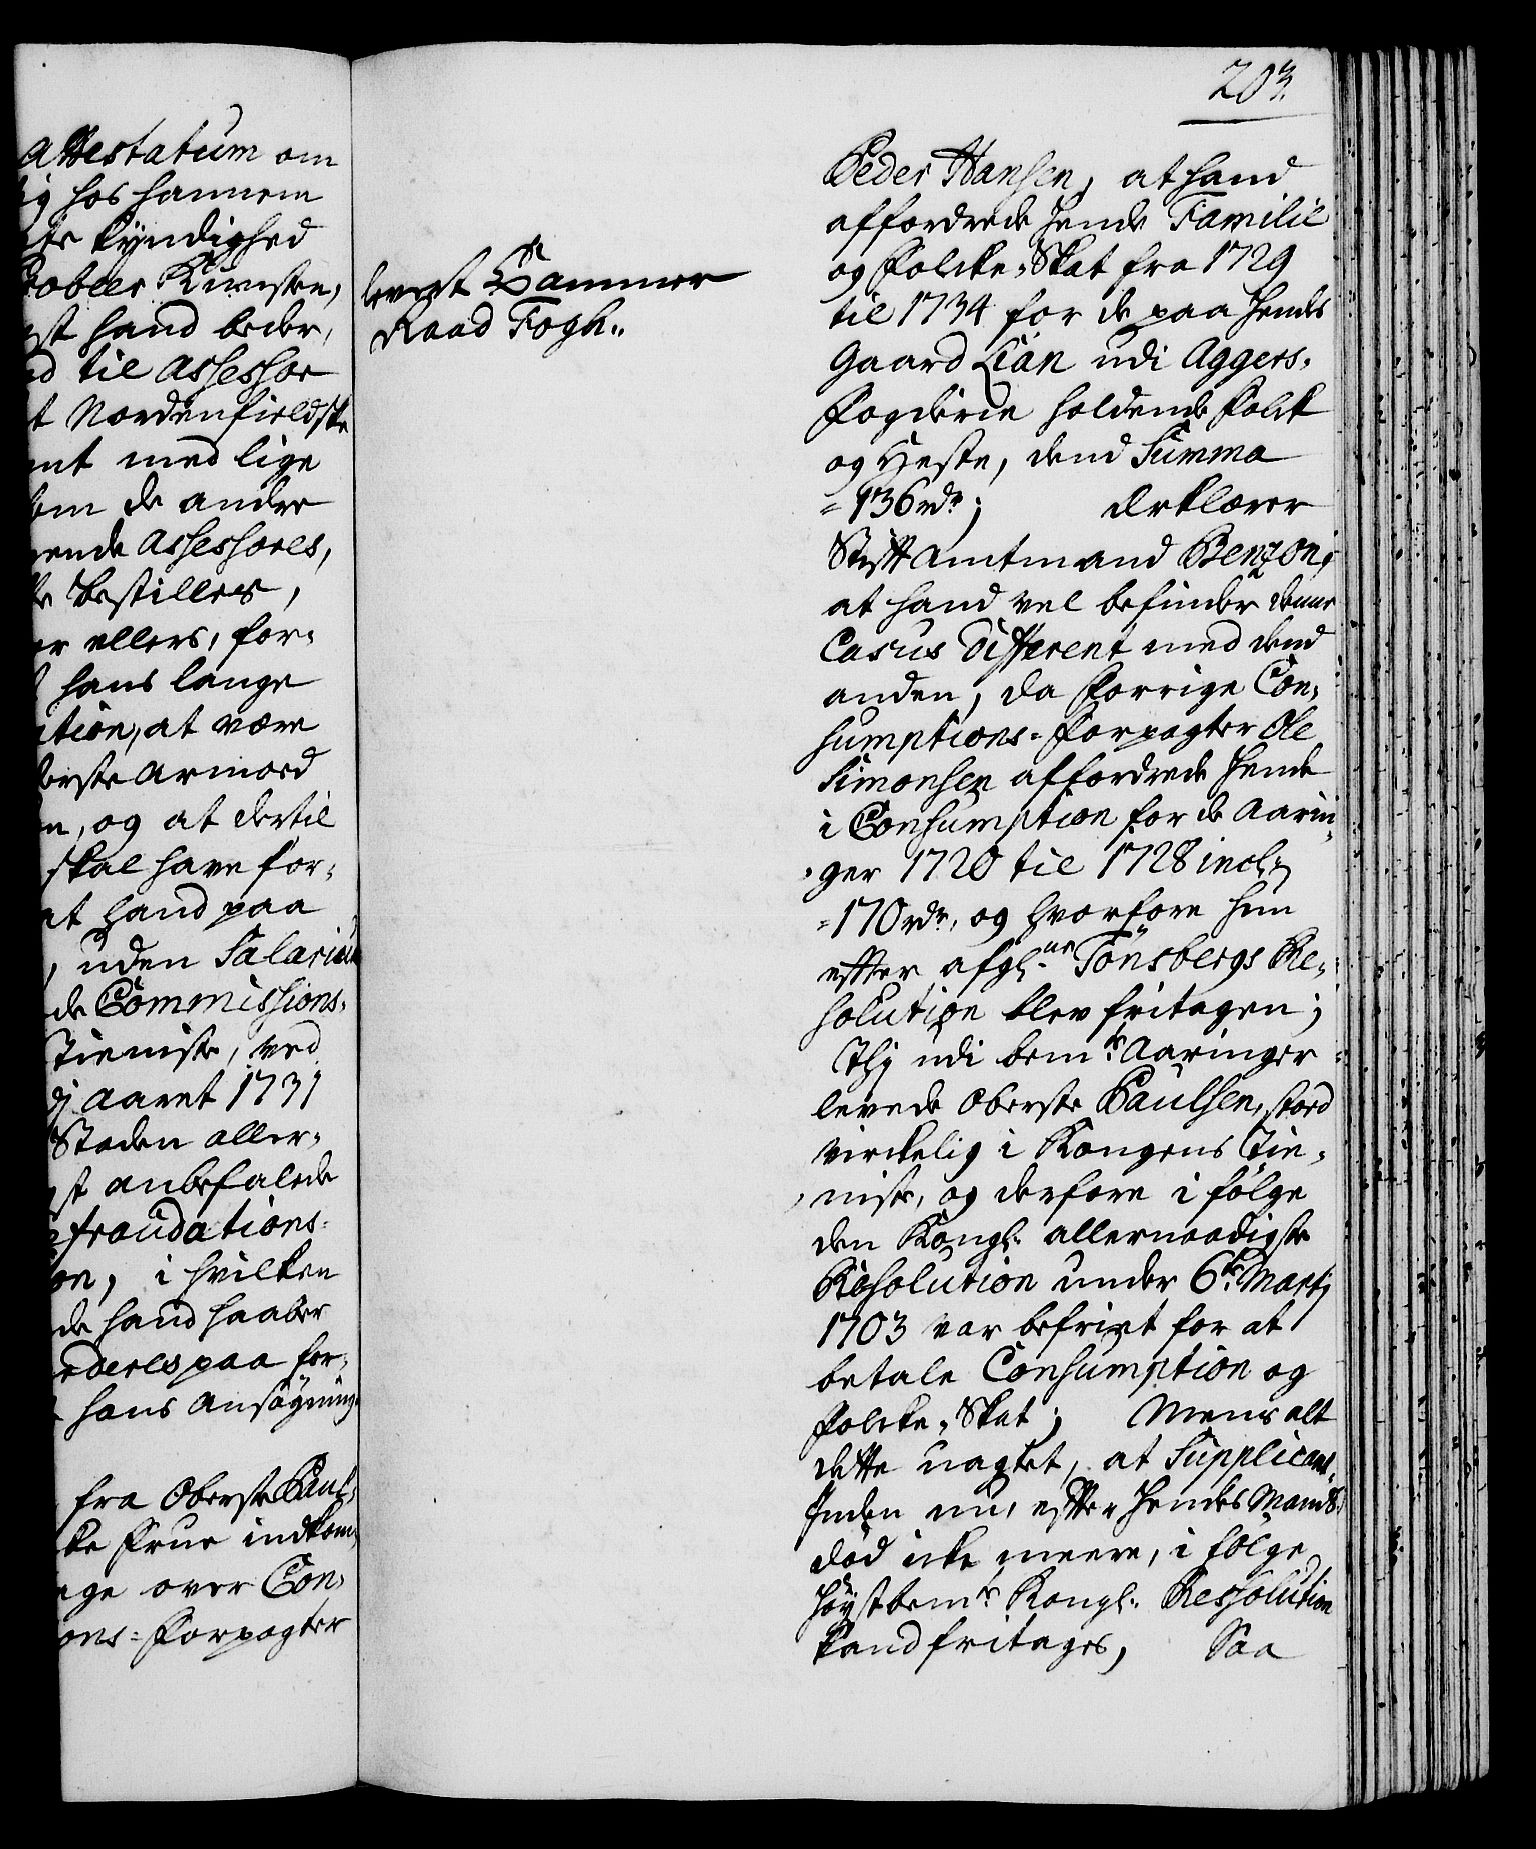 Attestatum om
ig hos hannem
kyndighed
st hand beder,
d til Assessor
t Nordenfieldske
nt med lige
om de andre
ende Assessores,
bestilles,
er ellers, for-
hans lange
ation, at være
ørste Armoed
n, og at dertil
skal have for-
at hand paa
, uden Salarium
de Commissions-
Tieniste, ved
dj Aaret 1731
Staden aller-
st anbefalede
efraudations-
on, i hvilken
de hand haaber
ederes paa for-
hans Ansøgning.
fra Oberste Paul-
ke Frue indkom-
age over Con-
ons-Forpagter
leveret Cammer
Raad Fogh..
203.
Peder Hansen, at hand
affordrede hende Familie
og Folcke-Skat fra 1729
til 1734 for de paa hendes
Gaard Lian udi Aggers-
Fogderie holdende Folck
og Heste, dend Summa
=136 rdr; Erklærer
Stift Amtmand Benzon,
at hand vel befinder denne
Casus Different med dend
anden, da forrige Con-
sumptions-Forpagter Ole
Simonsen affordrede hende
i Consumption for de Aarin-
ger 1720 til 1728 incl:
=170 rdr, og hvorfore hun
efter afgl:ne Tönsbergs Re-
solution blev fritagen;
Thj udi bem:te Aaringer
levede Oberste Paulsen, stoed
virckelig i Kongens Tie-
niste, og derfore i følge
den Kongl: allernaadigste
Resolution under 6te Martj
1703 var befriet for at
betale Consumption og
Folcke-Skat; Mens alt
dette uagtet, at Supplicant-
Inden nu, efter hendes Mands
død icke meere, i følge
høystbem:te Kongl: Resolution
kand fritages, Saa